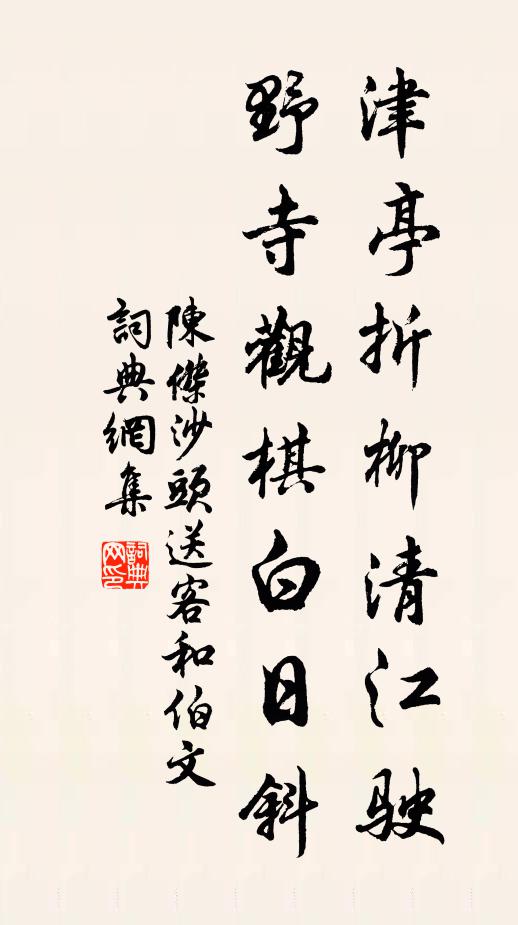 津亭折柳清江駛
野寺觀棋白日斜
陳傑沙頭送客和伯文
詞典網集
詞典网印